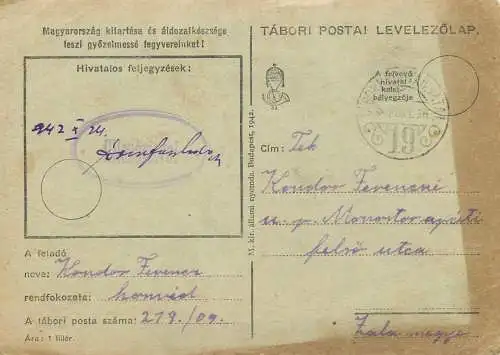 Magyarország kitartása és áldozatkészsége
teszi győzelmessé fegyvereinket!
Hivatalos feljegyzések:
942 X 24.
TÁBORI POSTAI LEVELEZŐLAP.
A felvevő
hivatal
kelet-
bélyegzője
19
M. kir. állami nyomda. Budapest, 1942.
Cím: Tek
Kondor Ferencné
u. p. Monostorapáti
felső utca
Zala megye
A feladó
neve: Kondor Ferenc
rendfokozata: honvéd
A tábori posta száma: 219/09.
Ára: 1 fillér.